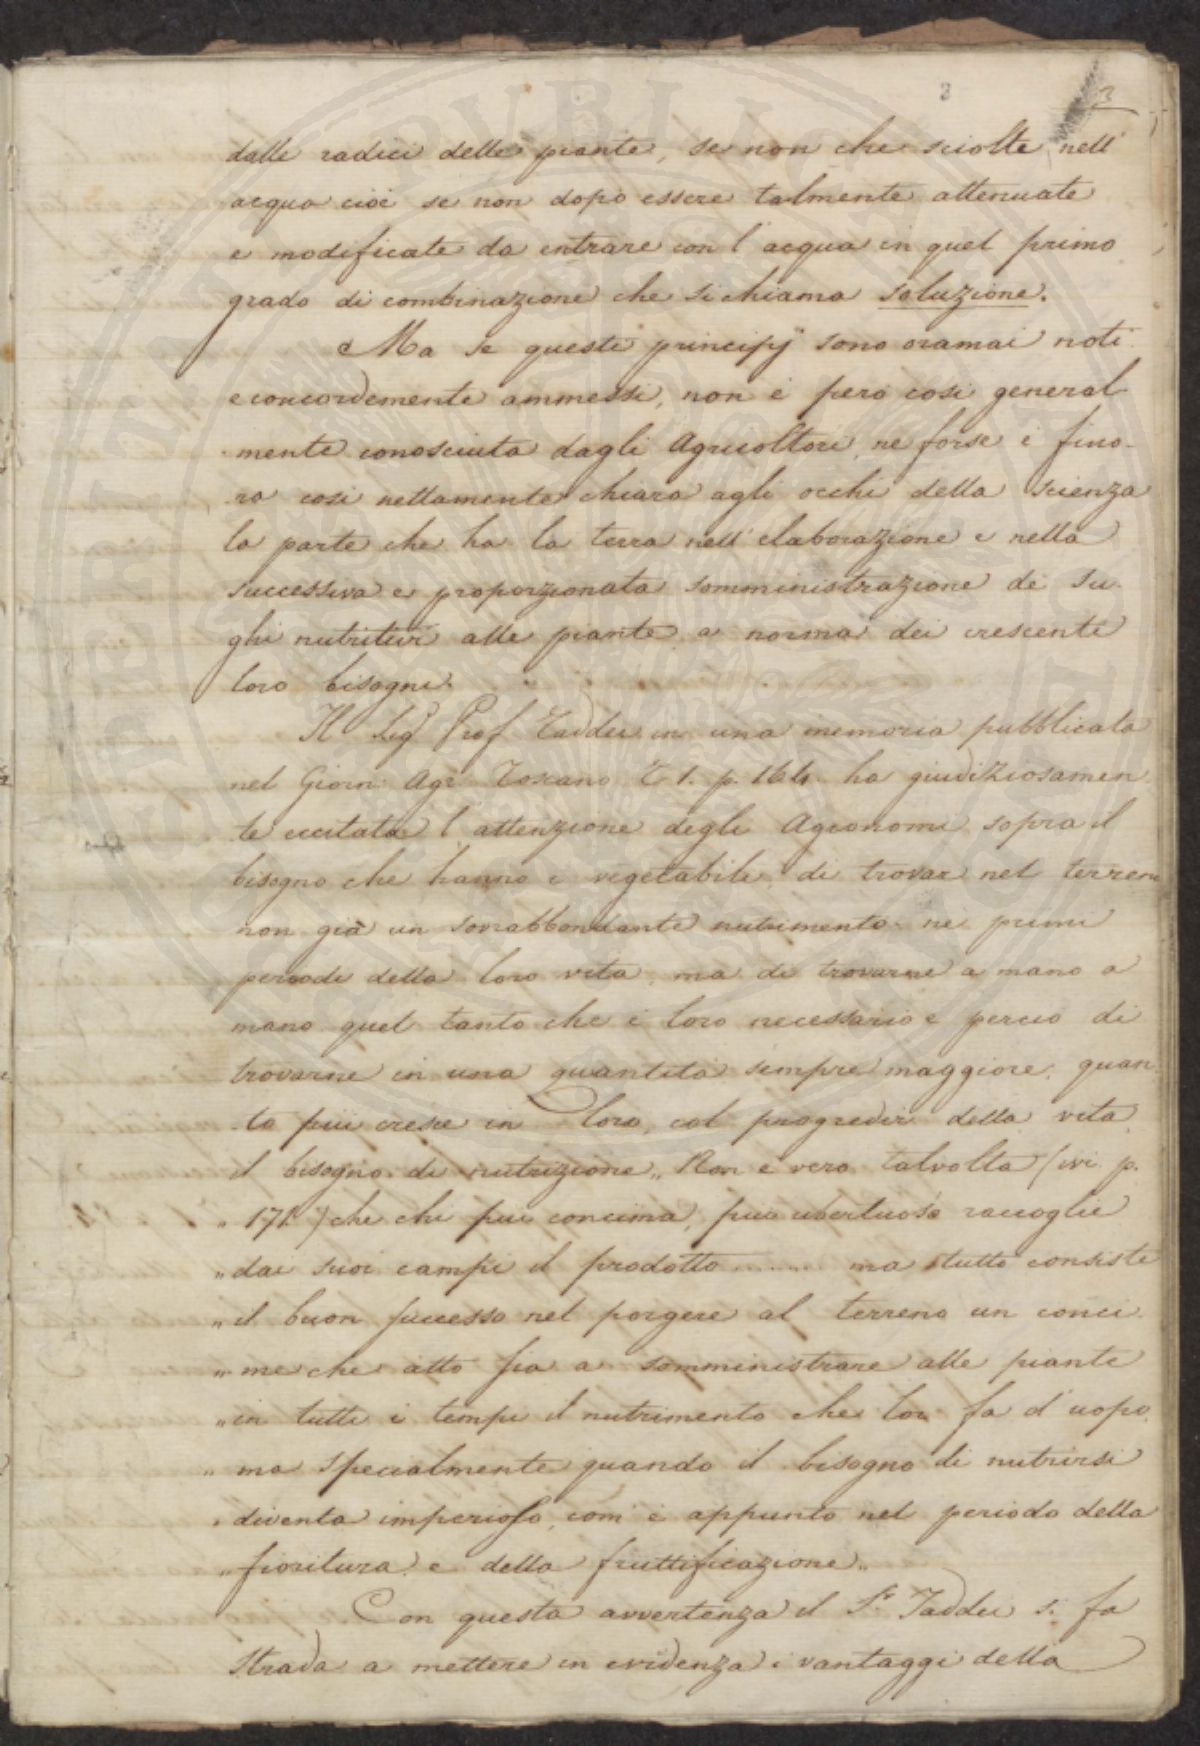 3
dalle radici delle piante, se non che sciolte nell'
acqua cioè se non dopo essere talmente attenuate
e modificate da entrare con l'acqua in quel primo
grado di combinazione che si chiama soluzione.
Ma se questi principj sono oramai noti
e concordemente ammessi, non è però così general
mente conosciuta dagli Agricoltori, ne forse è fino-
ra così nettamente chiara agli occhi della scienza
la parte che ha la terra nell'elaborazione e nella
successiva e proporzionata somministrazione de su-
ghi nutritivi alle piante a norma dei crescenti
loro bisogni.
Il Sigr Prof Taddei in una memoria pubblicata
nel Giorn: Agr Toscano T 1. p. 164. ha giudiziosamen
te eccitata l'attenzione degli Agronomi sopra il
bisogno che hanno i vegetabili di trovar nel terreno
non già un sovrabbondante nutrimento ne primi
periodi della loro vita, ma di trovarne a mano a
mano quel tanto che è loro necessario e perciò di
trovarne in una quantità sempre maggiore, quan
to più cresce in loro, col progredir della vita,
il bisogno di nutrizione „ Non è vero talvolta (ivi p.
„ 171.) che chi più concima, più ubertuoso raccoglie
„ dai suoi campi il prodotto ........ ma tutto consiste
„ il buon successo nel porgere al terreno un conci
„ me che atto sia a somministrare alle piante
„ in tutti i tempi il nutrimento che lor fa d'uopo,
„ ma specialmente quando il bisogno di nutrirsi
„ diventa imperioso, com'è appunto nel periodo della
„ fioritura e della fruttificazione „
Con questa avvertenza il Sr Taddei si fa
strada a mettere in evidenza i vantaggi della